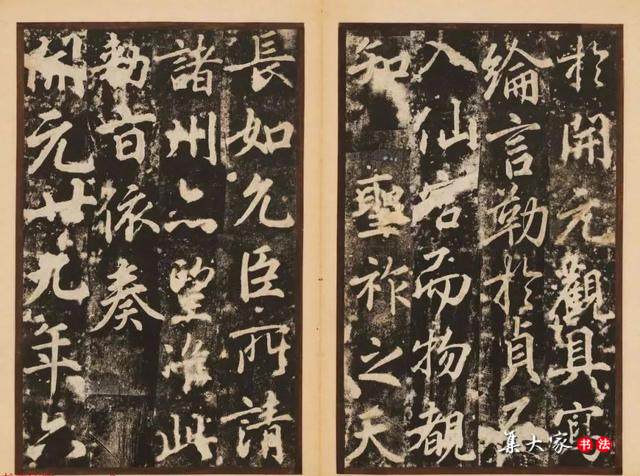 於開元觀具官
綸言勒於貞石
入仙宫而物覩
知聖祚之天
長如允臣所請
諸州亦望准此
勅旨依奏
開元廿九年六
集大家书法